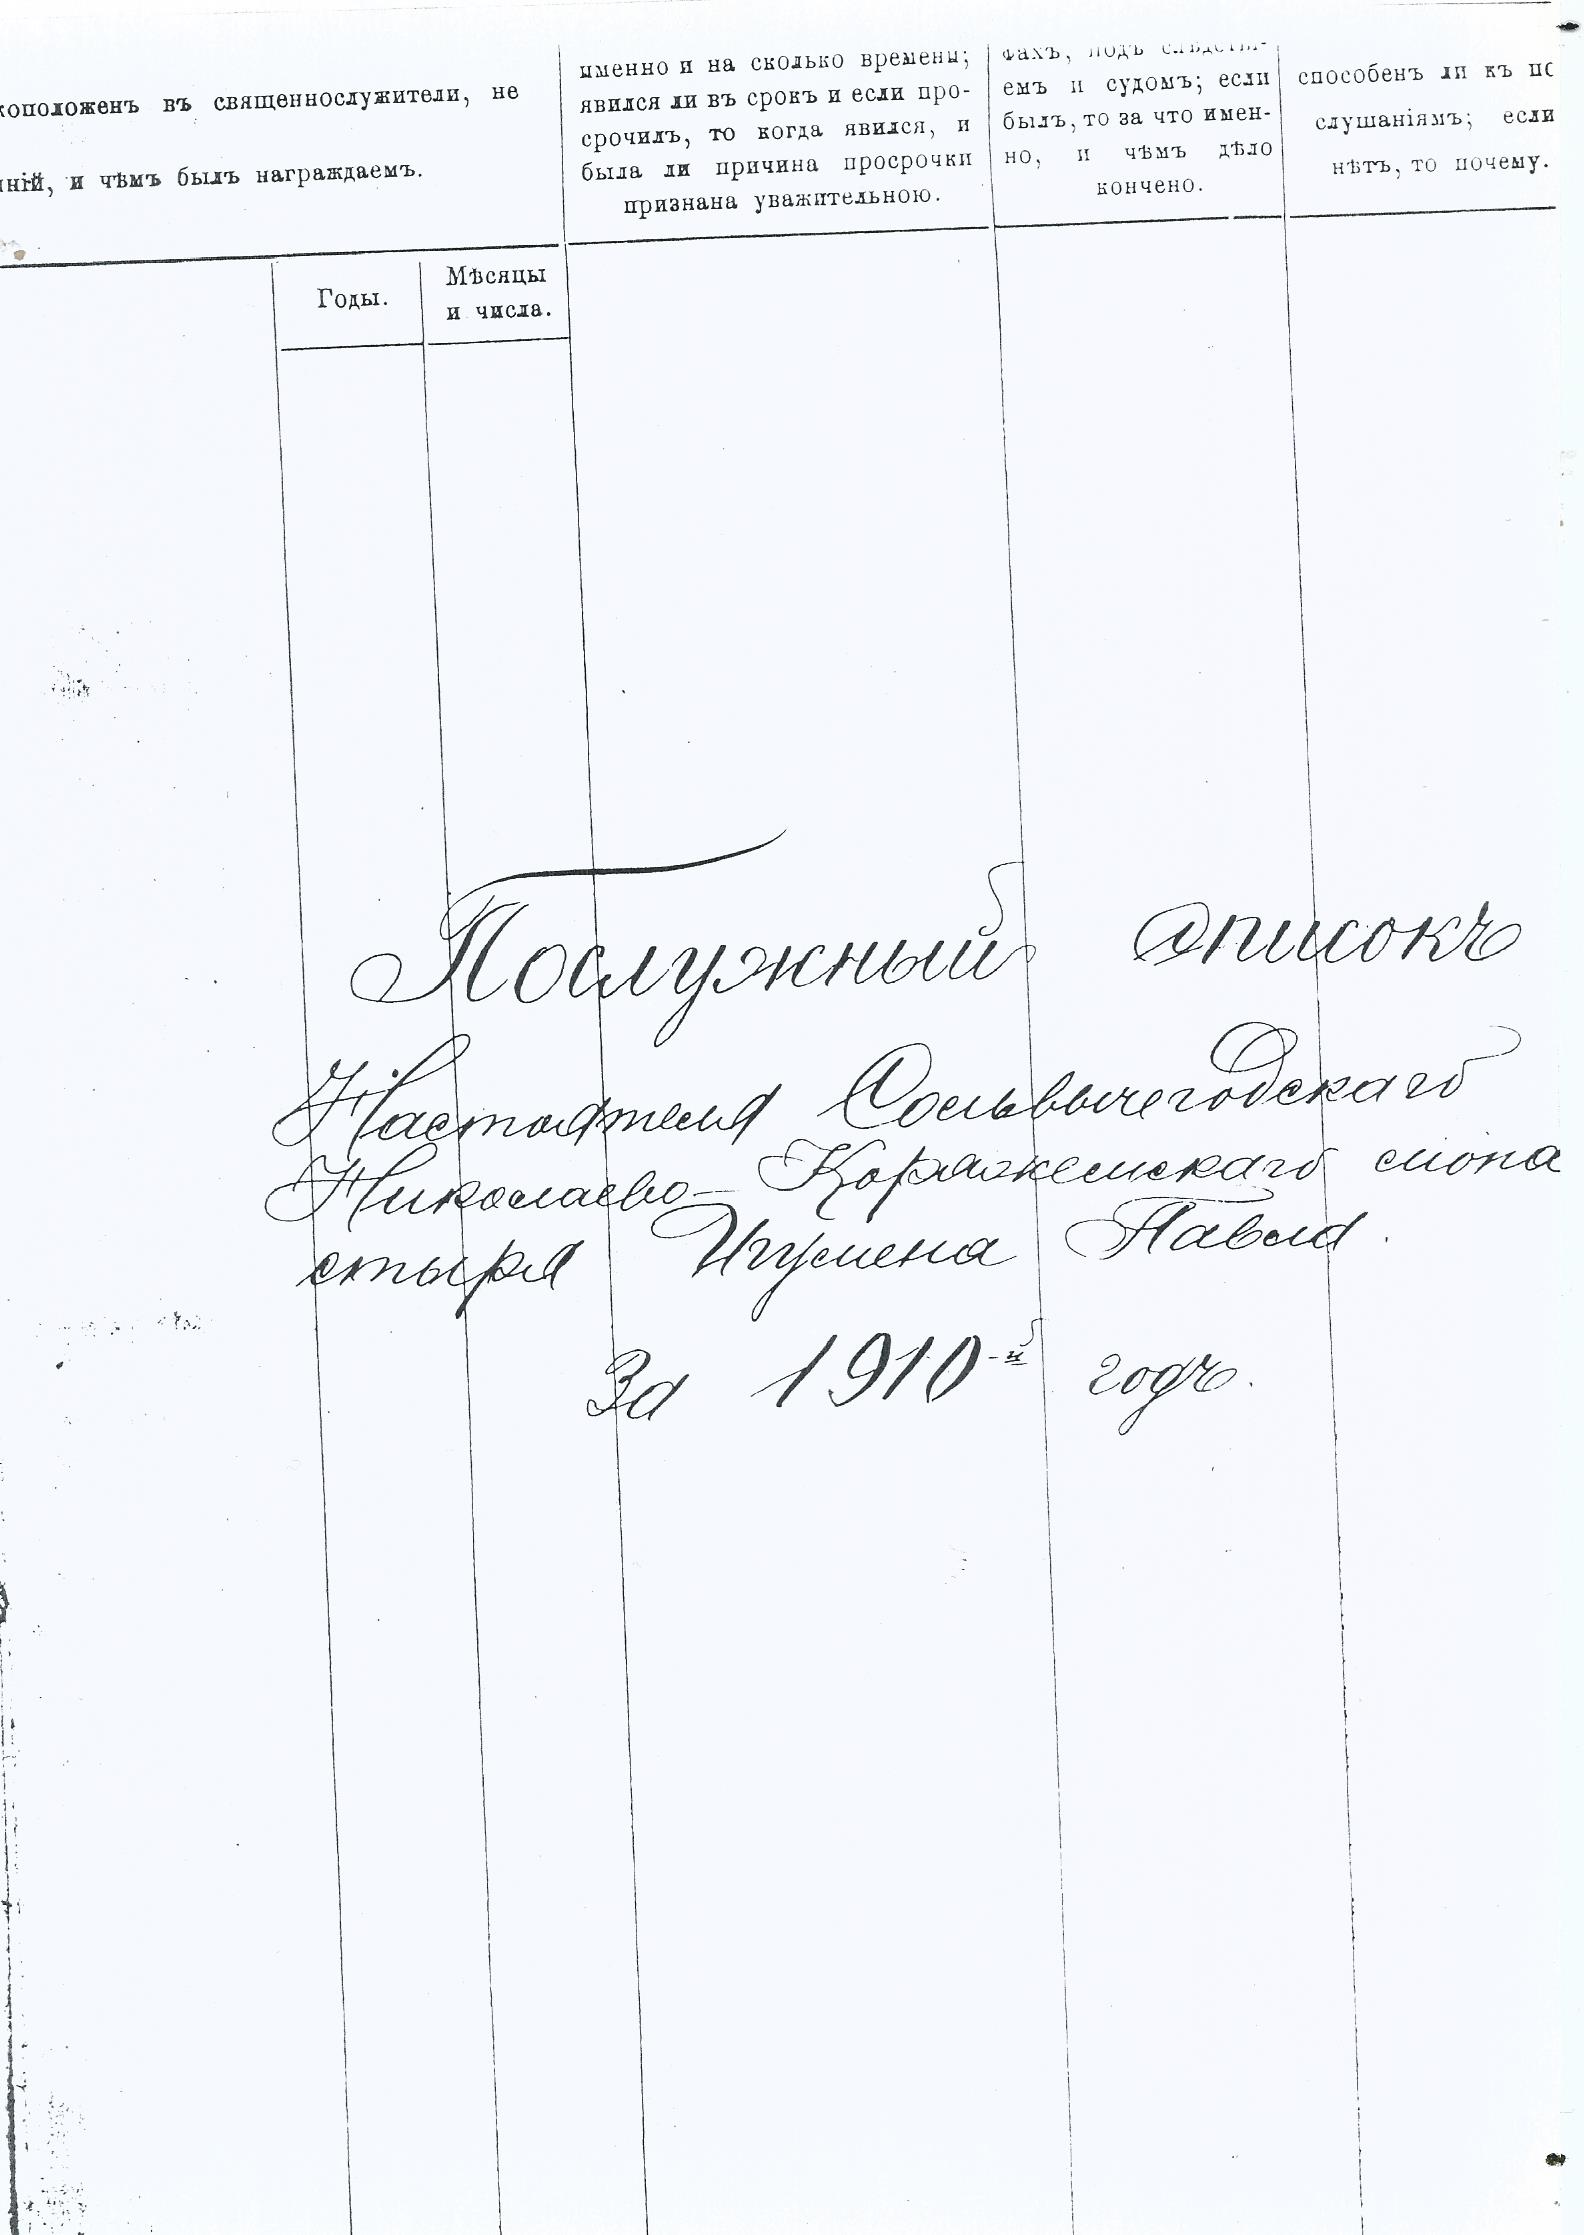 коположенъ въ священнослужители, не
ній, и чѣмъ былъ награждаемъ.
именно и на сколько времени;
явился ли въ срокъ и если про-
срочилъ, то когда явился, и
была ли причина просрочки
признана уважительною.
фахъ, подъ слѣдстві-
емъ и судомъ; если
былъ, то за что имен-
но, и чѣмъ дѣло
кончено.
способенъ ли къ по
слушаніямъ; если
нѣтъ, то почему.
Годы.
Мѣсяцы
и числа.
Послужный списокъ
Настоятеля Сольвычегодскаго
Николаево-Коряжемскаго мона
стыря Игумена Павла.
За 1910-й годъ.